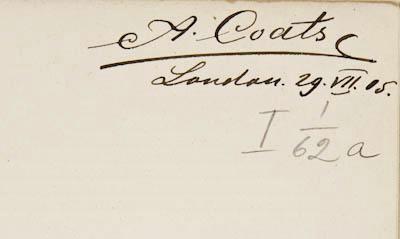 A. Coats
London. 29. VII. 05.
I 1/62 a